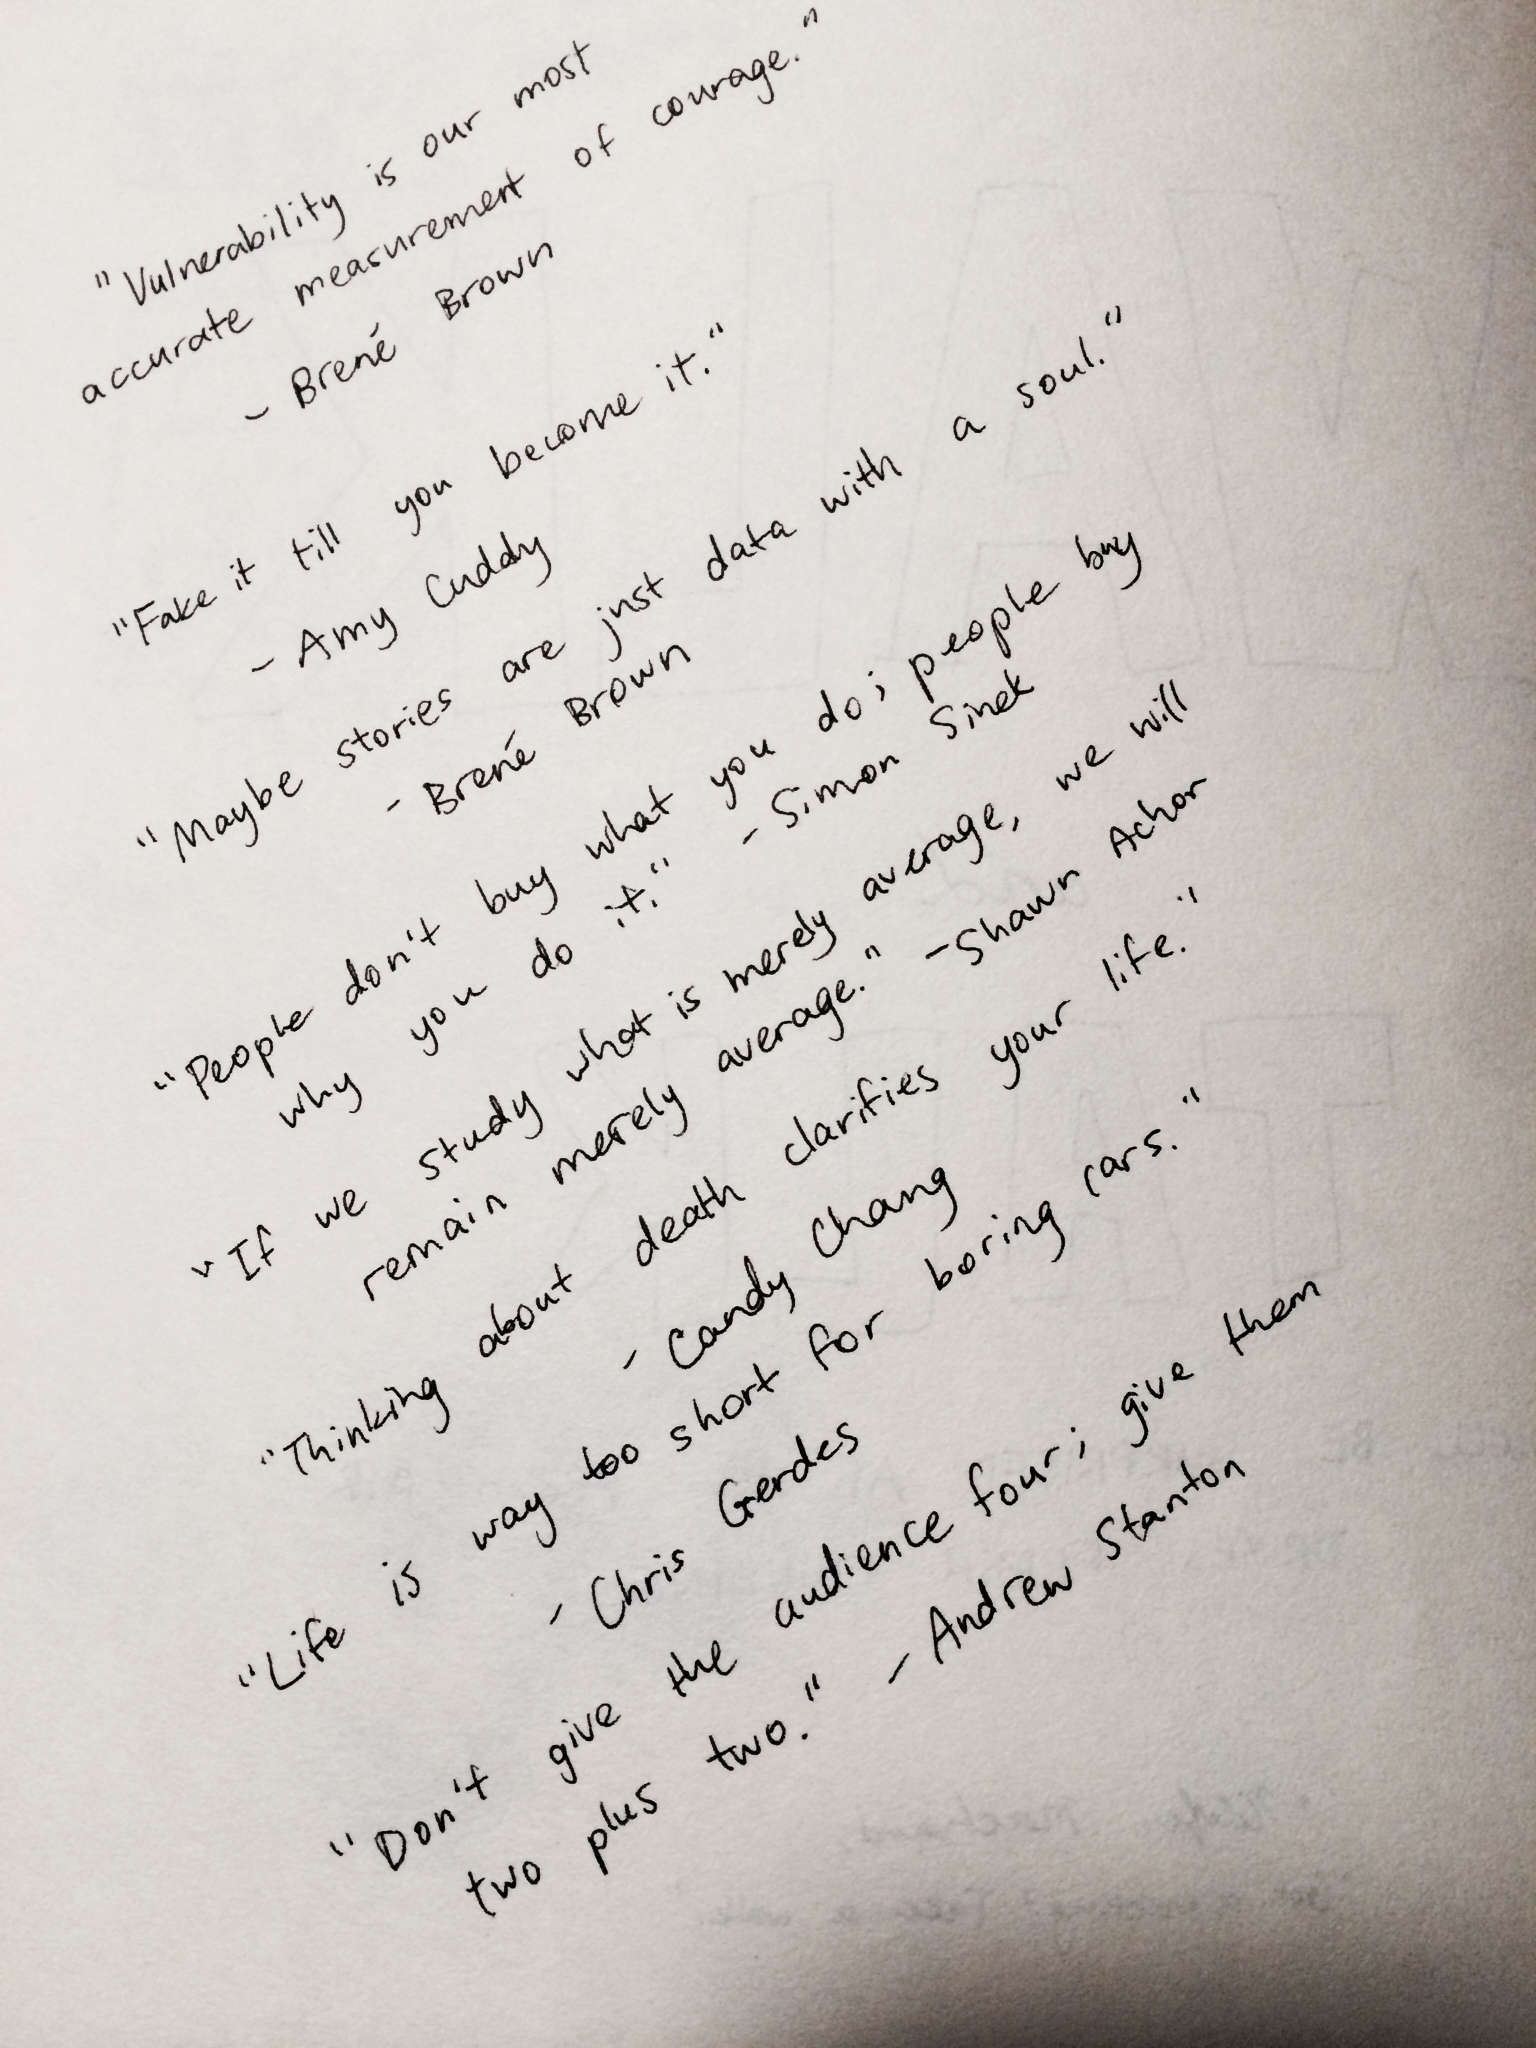 "Vulnerability is our most
accurate measurement of courage."
- Brené Brown
"Fake it till you become it."
- Amy Cuddy
"Maybe stories are just data with a soul."
- Brené Brown
"People don't buy what you do; people buy
why you do it." - Simon Sinek
"If we study what is merely average, we will
remain merely average." - Shawn Achor
"Thinking about death clarifies your life."
- Candy Chang
"Life is way too short for boring cars."
- Chris Gerdes
"Don't give the audience four; give them
two plus two." - Andrew Stanton